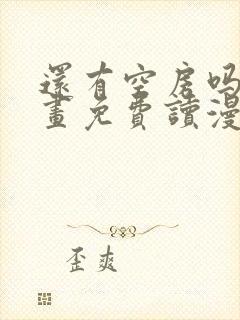 還有空房吗
畫免費讀漫
歪爽